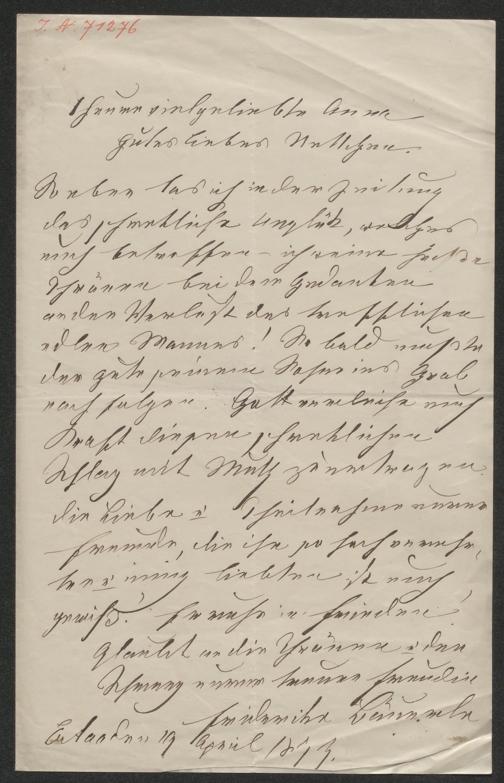 I. N. 71276
Theure vielgeliebte Anna
gutes liebes Nettchen.
So eben las ich in der Zeitung
das schreckliche Unglük, welches
euch betroffen – ich weine heiße
Thränen bei dem Gedanken
an den Verlust des trefflichen
edlen Mannes! So bald mußte
der gute seinem Sohne ins Grab
nach folgen. Gott verleihe euch
Kraft diesen schrecklichen
Schlag mit Muth zu ertragen
die Liebe u Theilnahme eurer
Freunde, die ihn so hoch verehr
ten u innig liebten ist euch
gewiß. Er ruhe in Frieden
Glaubt an die Thränen u den
Schmerz eurer treuen Freundin
Friederike Bäuerle
April